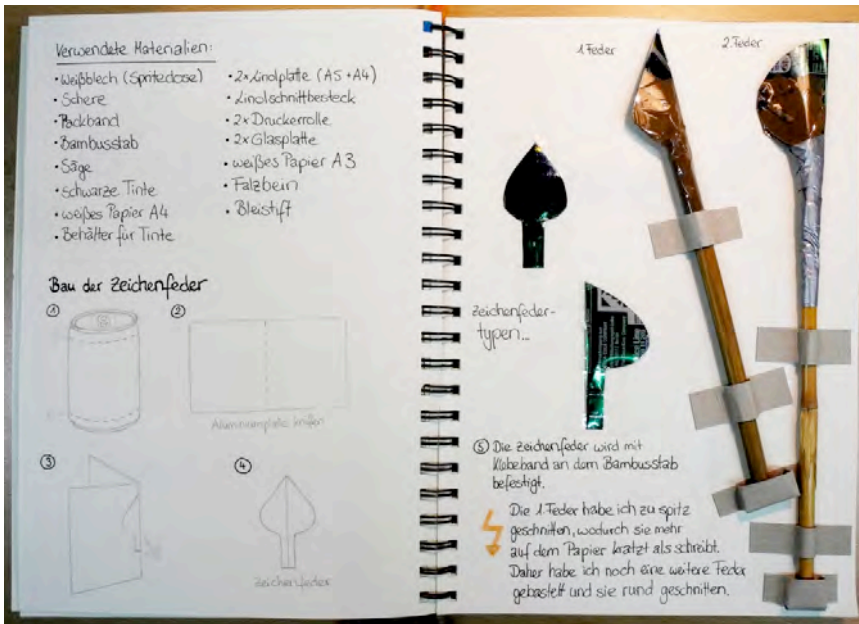 Verwendete Materialien:
• Weißblech (Spritedose)
• Schere
• Packband
• Bambusstab
• Säge
• schwarze Tinte
• weißes Papier A4
• Behälter für Tinte
• 2x Linolplatte (A5 + A4)
• Linolschnittbesteck
• 2x Druckerrolle
• 2x Glasplatte
• weißes Papier A3
• Falzbein
• Bleistift
Bau der Zeichenfeder
①
②
Aluminiumplatte knifen
③
④
Zeichenfeder
1. Feder
2. Feder
Zeichenfeder-
typen...
⑤ Die Zeichenfeder wird mit
Klebeband an dem Bambusstab
befestigt.
Die 1. Feder habe ich zu spitz
geschnitten, wodurch sie mehr
auf dem Papier kratzt als schreibt.
Daher habe ich noch eine weitere Feder
gebastelt und sie rund geschnitten.